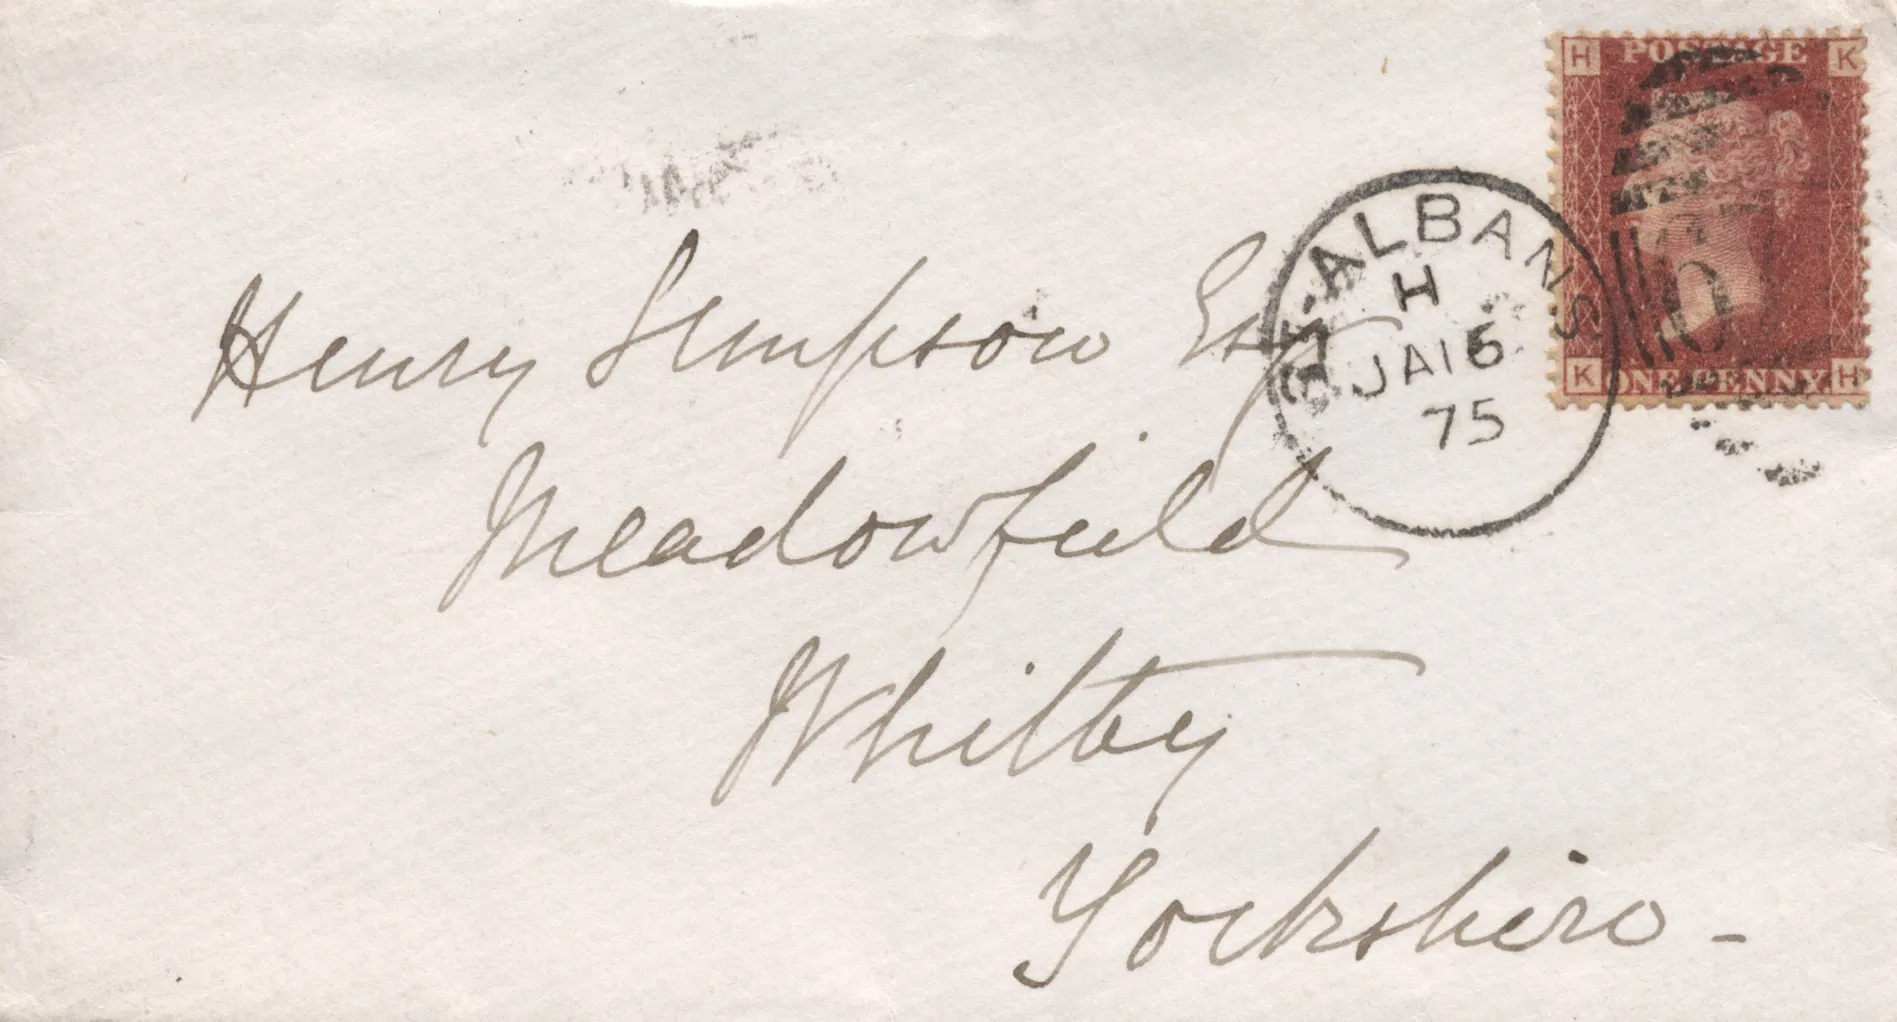 H POSTAGE K
ST. ALBANS
H
JA 15
75
K ONE PENNY H
Henry Simpson Esq
Meadowfield
Whitby
Yorkshire -